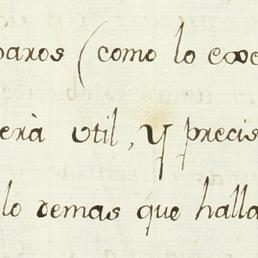 paros (como lo exe
erà util, y precis
lo demas que halla